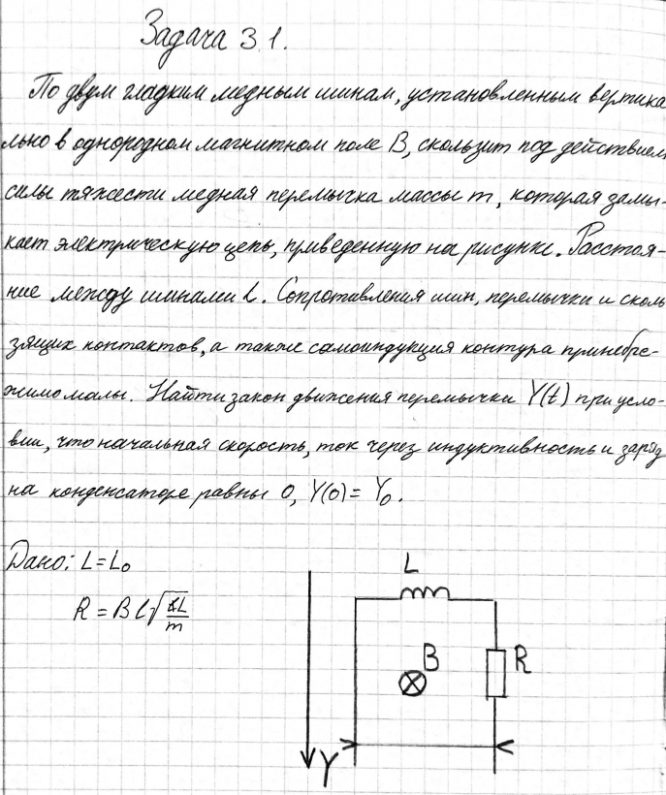 Задача 3 1.
По двум гладким медным шинам, установленным вертика
льно в однородном магнитном поле B, скользит под действием
силы тяжести медная перемычка массы m, которая замы-
кает электрическую цепь, приведенную на рисунке. Расстоя-
ние между шинами L. Сопротивления шин, перемычки и сколь
зящих контактов, а также самоиндукция контура принебре-
жимо малы. Найти закон движения перемычки Y(t) при усло-
вии, что начальная скорость, ток через индуктивность и заряд
на конденсаторе равны 0, Y(0) = Y₀.
Дано: L = L₀
R = B l √ L/m
L
B
R
Y